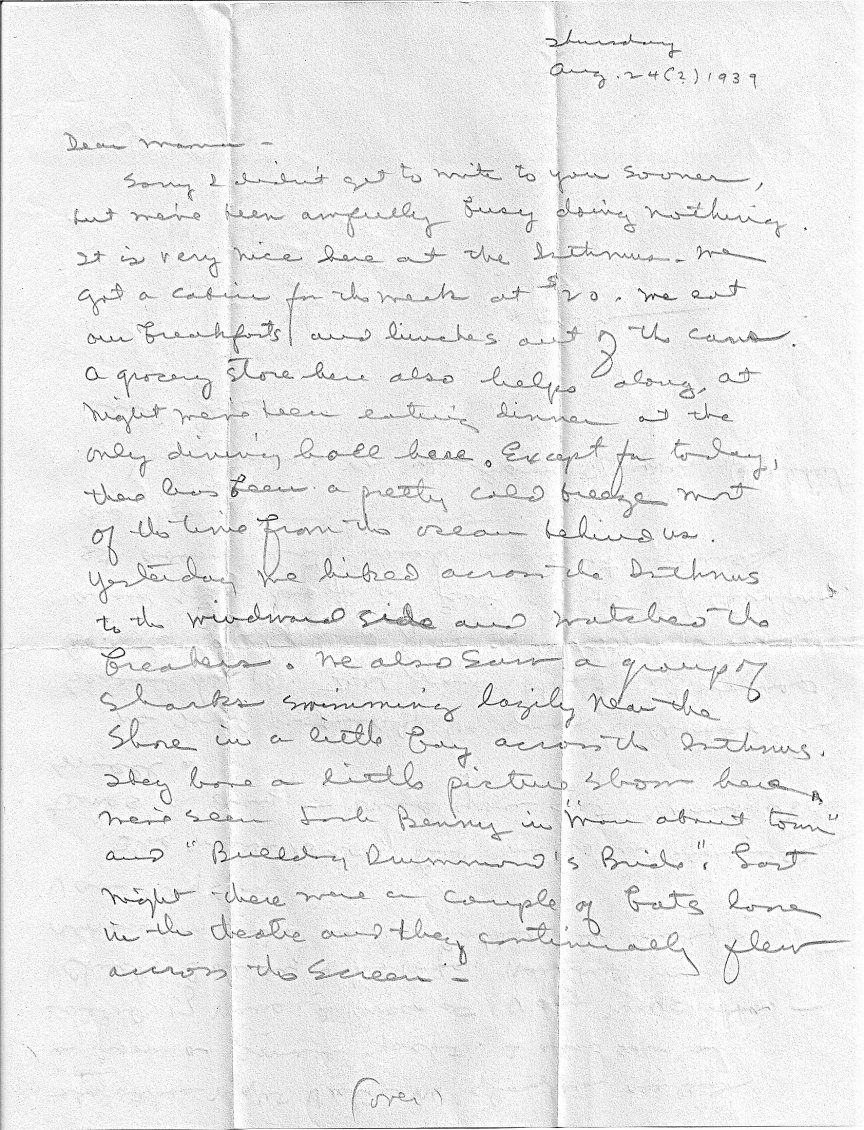 Thursday
Aug. 24(?) 1939
Dear Mama -
Sorry I didn't get to write to you sooner,
but we've been awfully busy doing nothing.
It is very nice here at the Isthmus. We
got a cabin for the week at $20. We eat
our breakfasts and lunches out of the cans.
A grocery store here also helps along, at
night we've been eating dinner at the
only dining hall here. Except for today,
there has been a pretty cold breeze most
of the time from the ocean behind us.
Yesterday we hiked across the Isthmus
to the windward side and watched the
breakers. We also saw a group of
sharks swimming lazily near the
shore in a little bay across the Isthmus.
They have a little picture show here,
we've seen Jack Benny in "Man about town"
and "Bulldog Drummond's Bride". Last
night there were a couple of bats loose
in the theatre and they continually flew
across the screen -
(over)